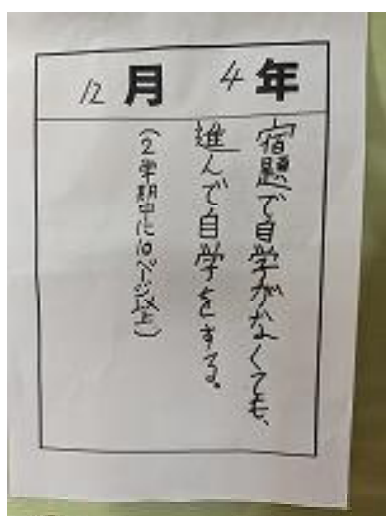 4年 12月
宿題で自学がなくても、
進んで自学をする。
(2学期中に10ページ以上)